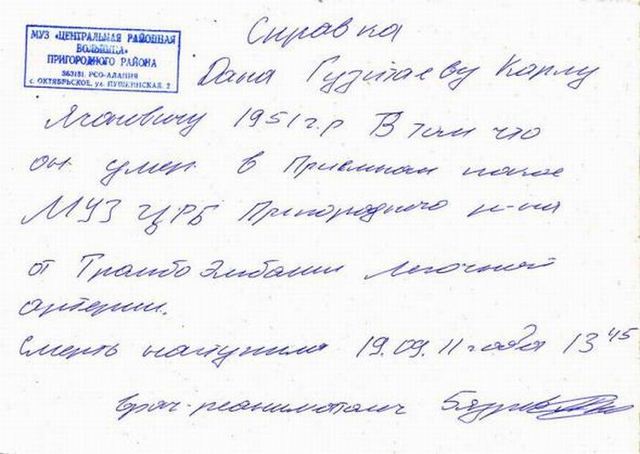 МУЗ «ЦЕНТРАЛЬНАЯ РАЙОННАЯ
БОЛЬНИЦА»
ПРИГОРОДНОГО РАЙОНА
363131, РСО-АЛАНИЯ
с. ОКТЯБРЬСКОЕ, ул. ПУШКИНСКАЯ, 2
Справка
Дана Гузитаеву Карлу
1951 г.р В том что
он умер в Приемном покое
МУЗ ЦРБ Пригородного р-на
от Тромбо Эмболии Легочной
артерии.
Смерть наступила 19.09.11 года 13 45
врач-реаниматолог